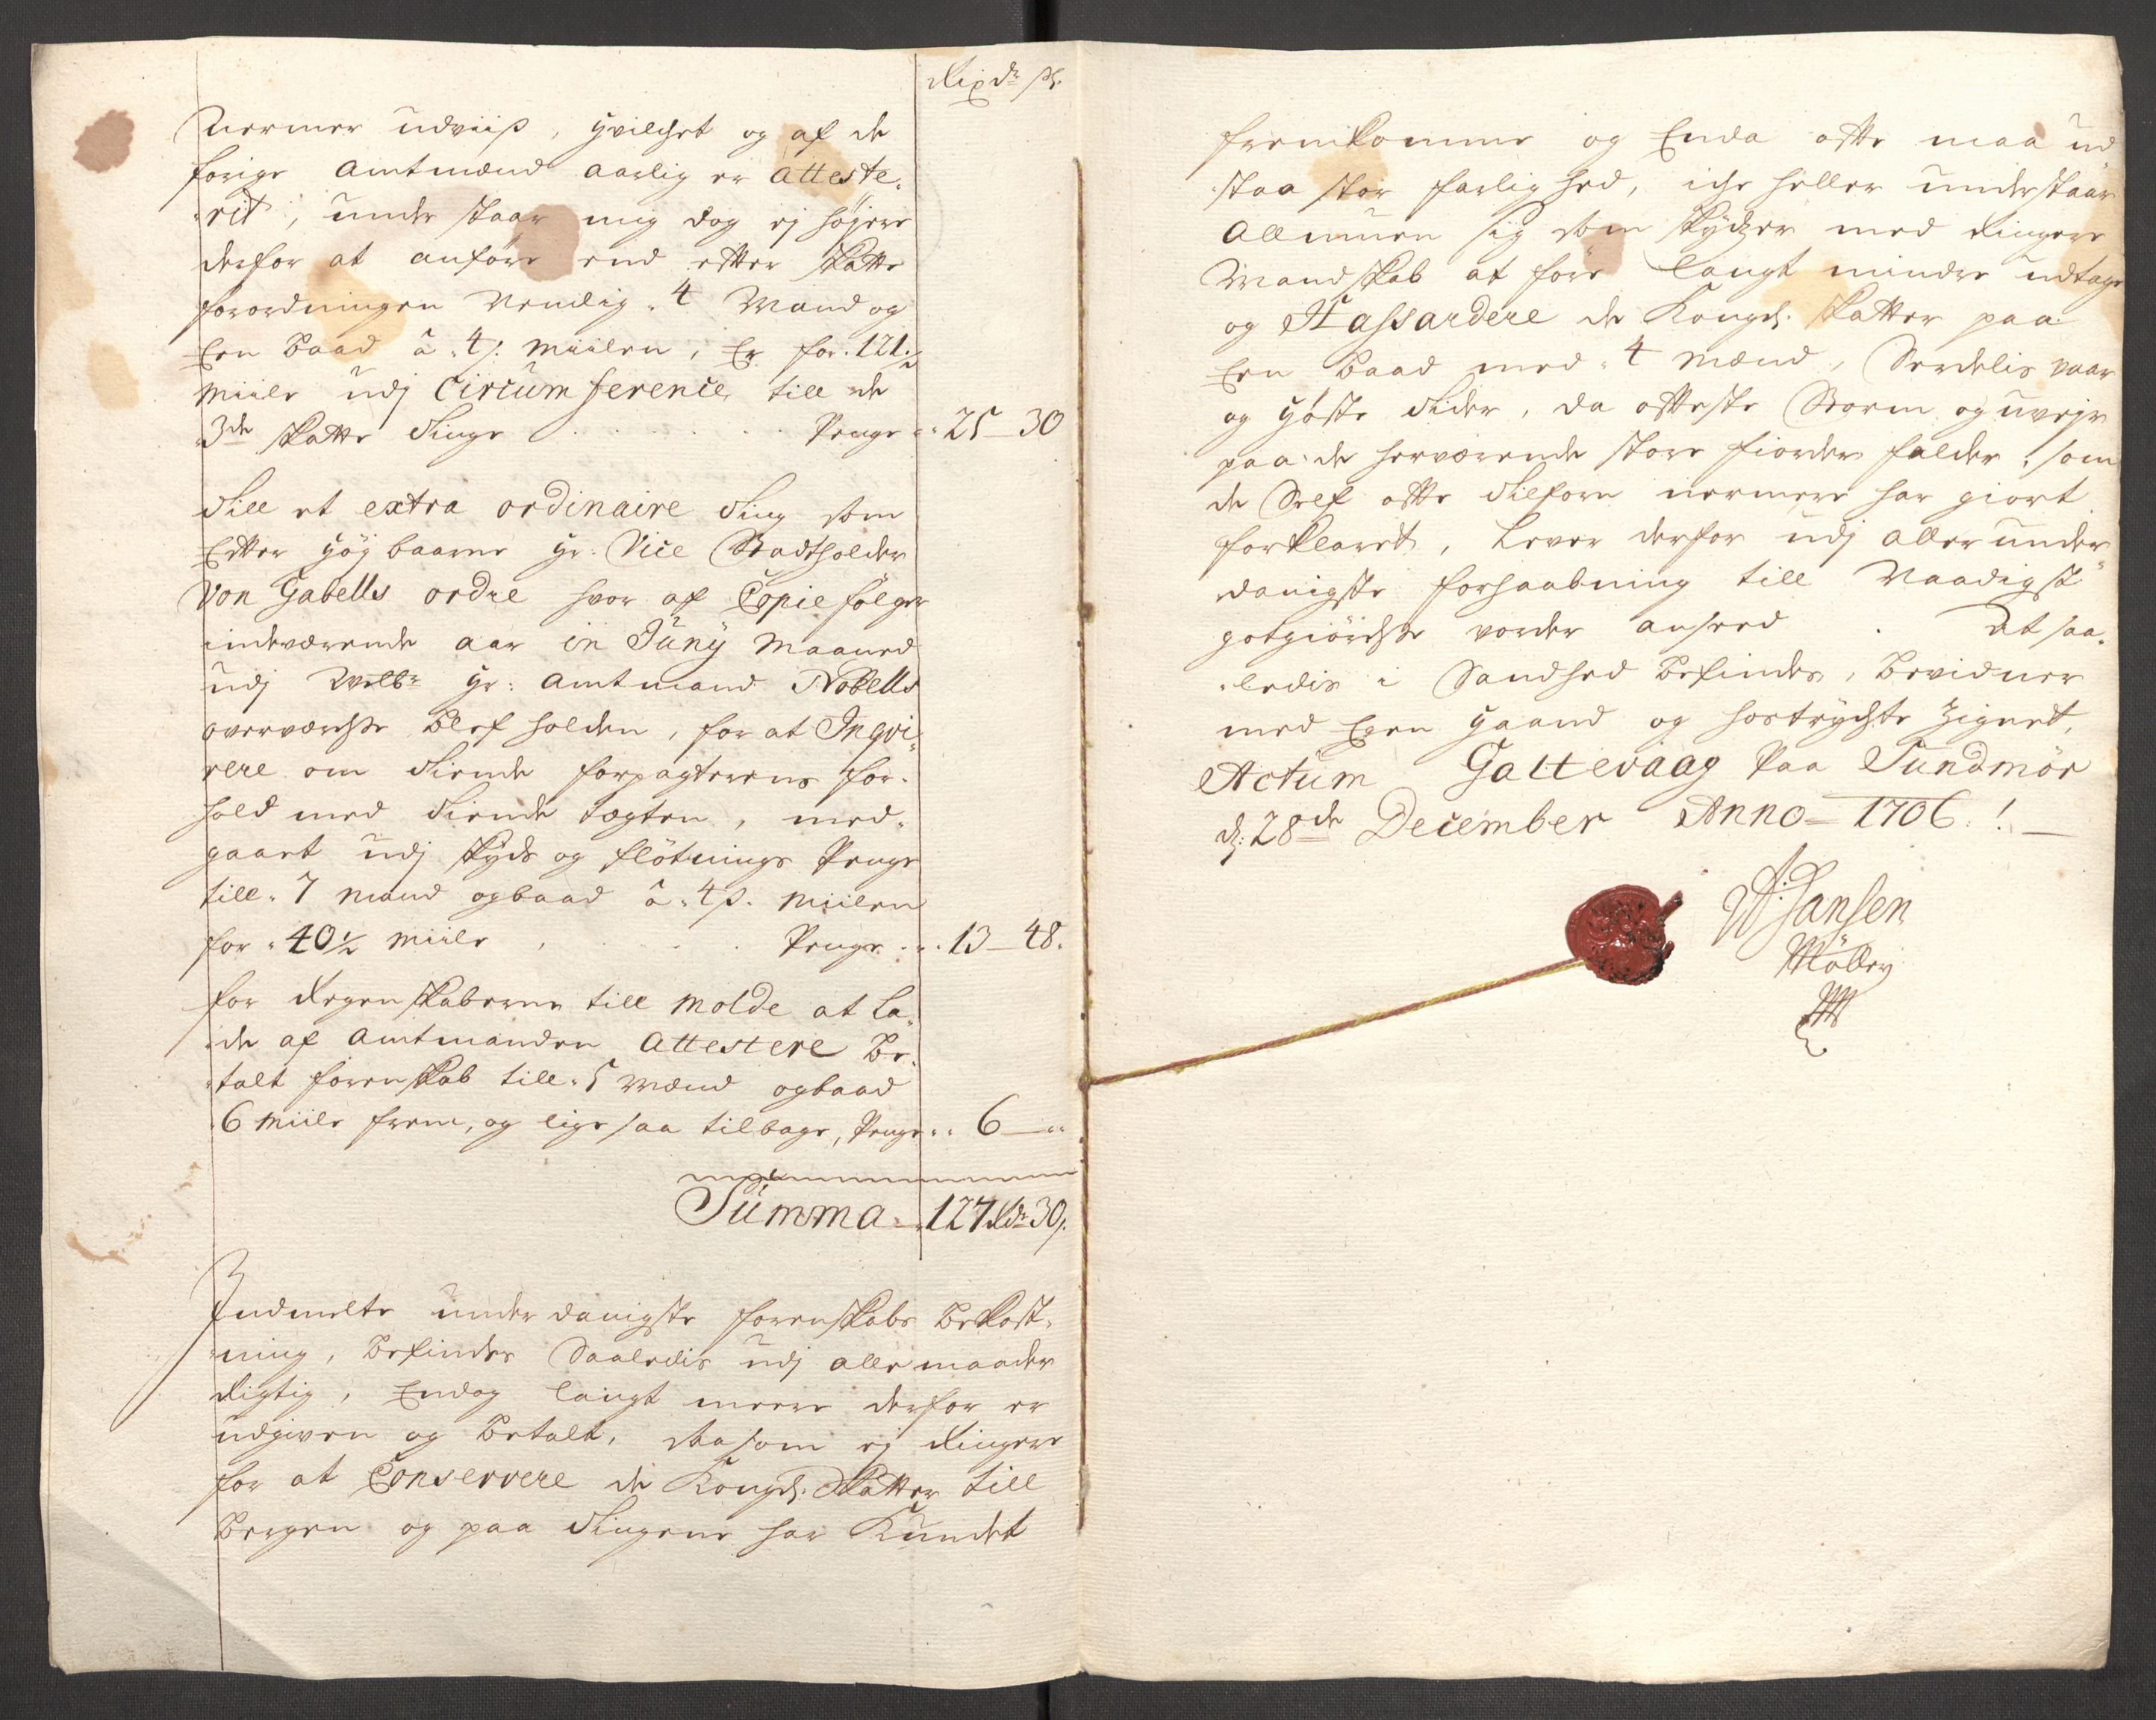 Rixdr ß.
nermer udviiß, hvilchet og af de
forige Amtmænd aarlig er Atteste„
„rit, under staar mig dog ej højere
derfor at anföre end efter Skatte
forordningen Nemlig 4 Mand og
Een Baad â 4ß. Miilen, Er for 121½
Miile udj Circumference, till de
3de Skatte Tinge . . . . . Penge „ 25 – 30
Till et extra ordinaire Ting som
Efter Höybaarne Hr: Vice Stadtholder
Von Gabells ordre hvor af Copie fölger
indeværende aar in Juny Maaned
udj Wellbr Hr: Amtmand Nobells
overværelse blef holden, for at Inqvi„
rere om Tiende forpagterens for„
hold med Tiende tagten, med„
gaaet udj Skyds og flötnings Penge
till 7 Mand og baad â 4ß. Miilen
for 40½ Miile . . . Penge „ 13 – 48.
for Regenskaberne till Molde at la„
„de af Amtmanden Attestere be„
„talt förenskab till 5 Mænd og baad
6 Miile frem, og lige saa tilbage, Penge „ 6 – „
Summa „ 127 Rdr 30ß.
Indmelte under danigste förenskabs bekost„
„ning, befindes Saaledis udj alle maader
Rigtig, Endog langt meere derfor er
udgiven og betalt, saasom ej Ringere
for at Conservere de Kongl: Skatter till
Bergen og paa Tingene har Kundet
fremkomme og Enda ofte maa ud
„staa stor farlighed, iche heller understaar
Allmuen sig som Skydzer med Ringere
Mandskab at före langt mindre udtage
og Hassardere de Kongl: Skatter paa
Een Baad med 4 Mænd, Serdelis vaar
og Höste Tider, da ofteste Storm og uvejr
paa de herværende store fiorder falder, som
de Self ofte Tilforn nermere har giort
forklaret, Lever derfor udj aller under„
danigste forhaabning till Naadigst
godgiörelse vorder anseed . At saa„
„ledis i Sandhed befindes, bevidner
med Egen Haand og hostrychte Zignet,
Actum Gattevaag Paa Sundmör
d: 28de December Anno – 1706. ! –
Jansen
Möller